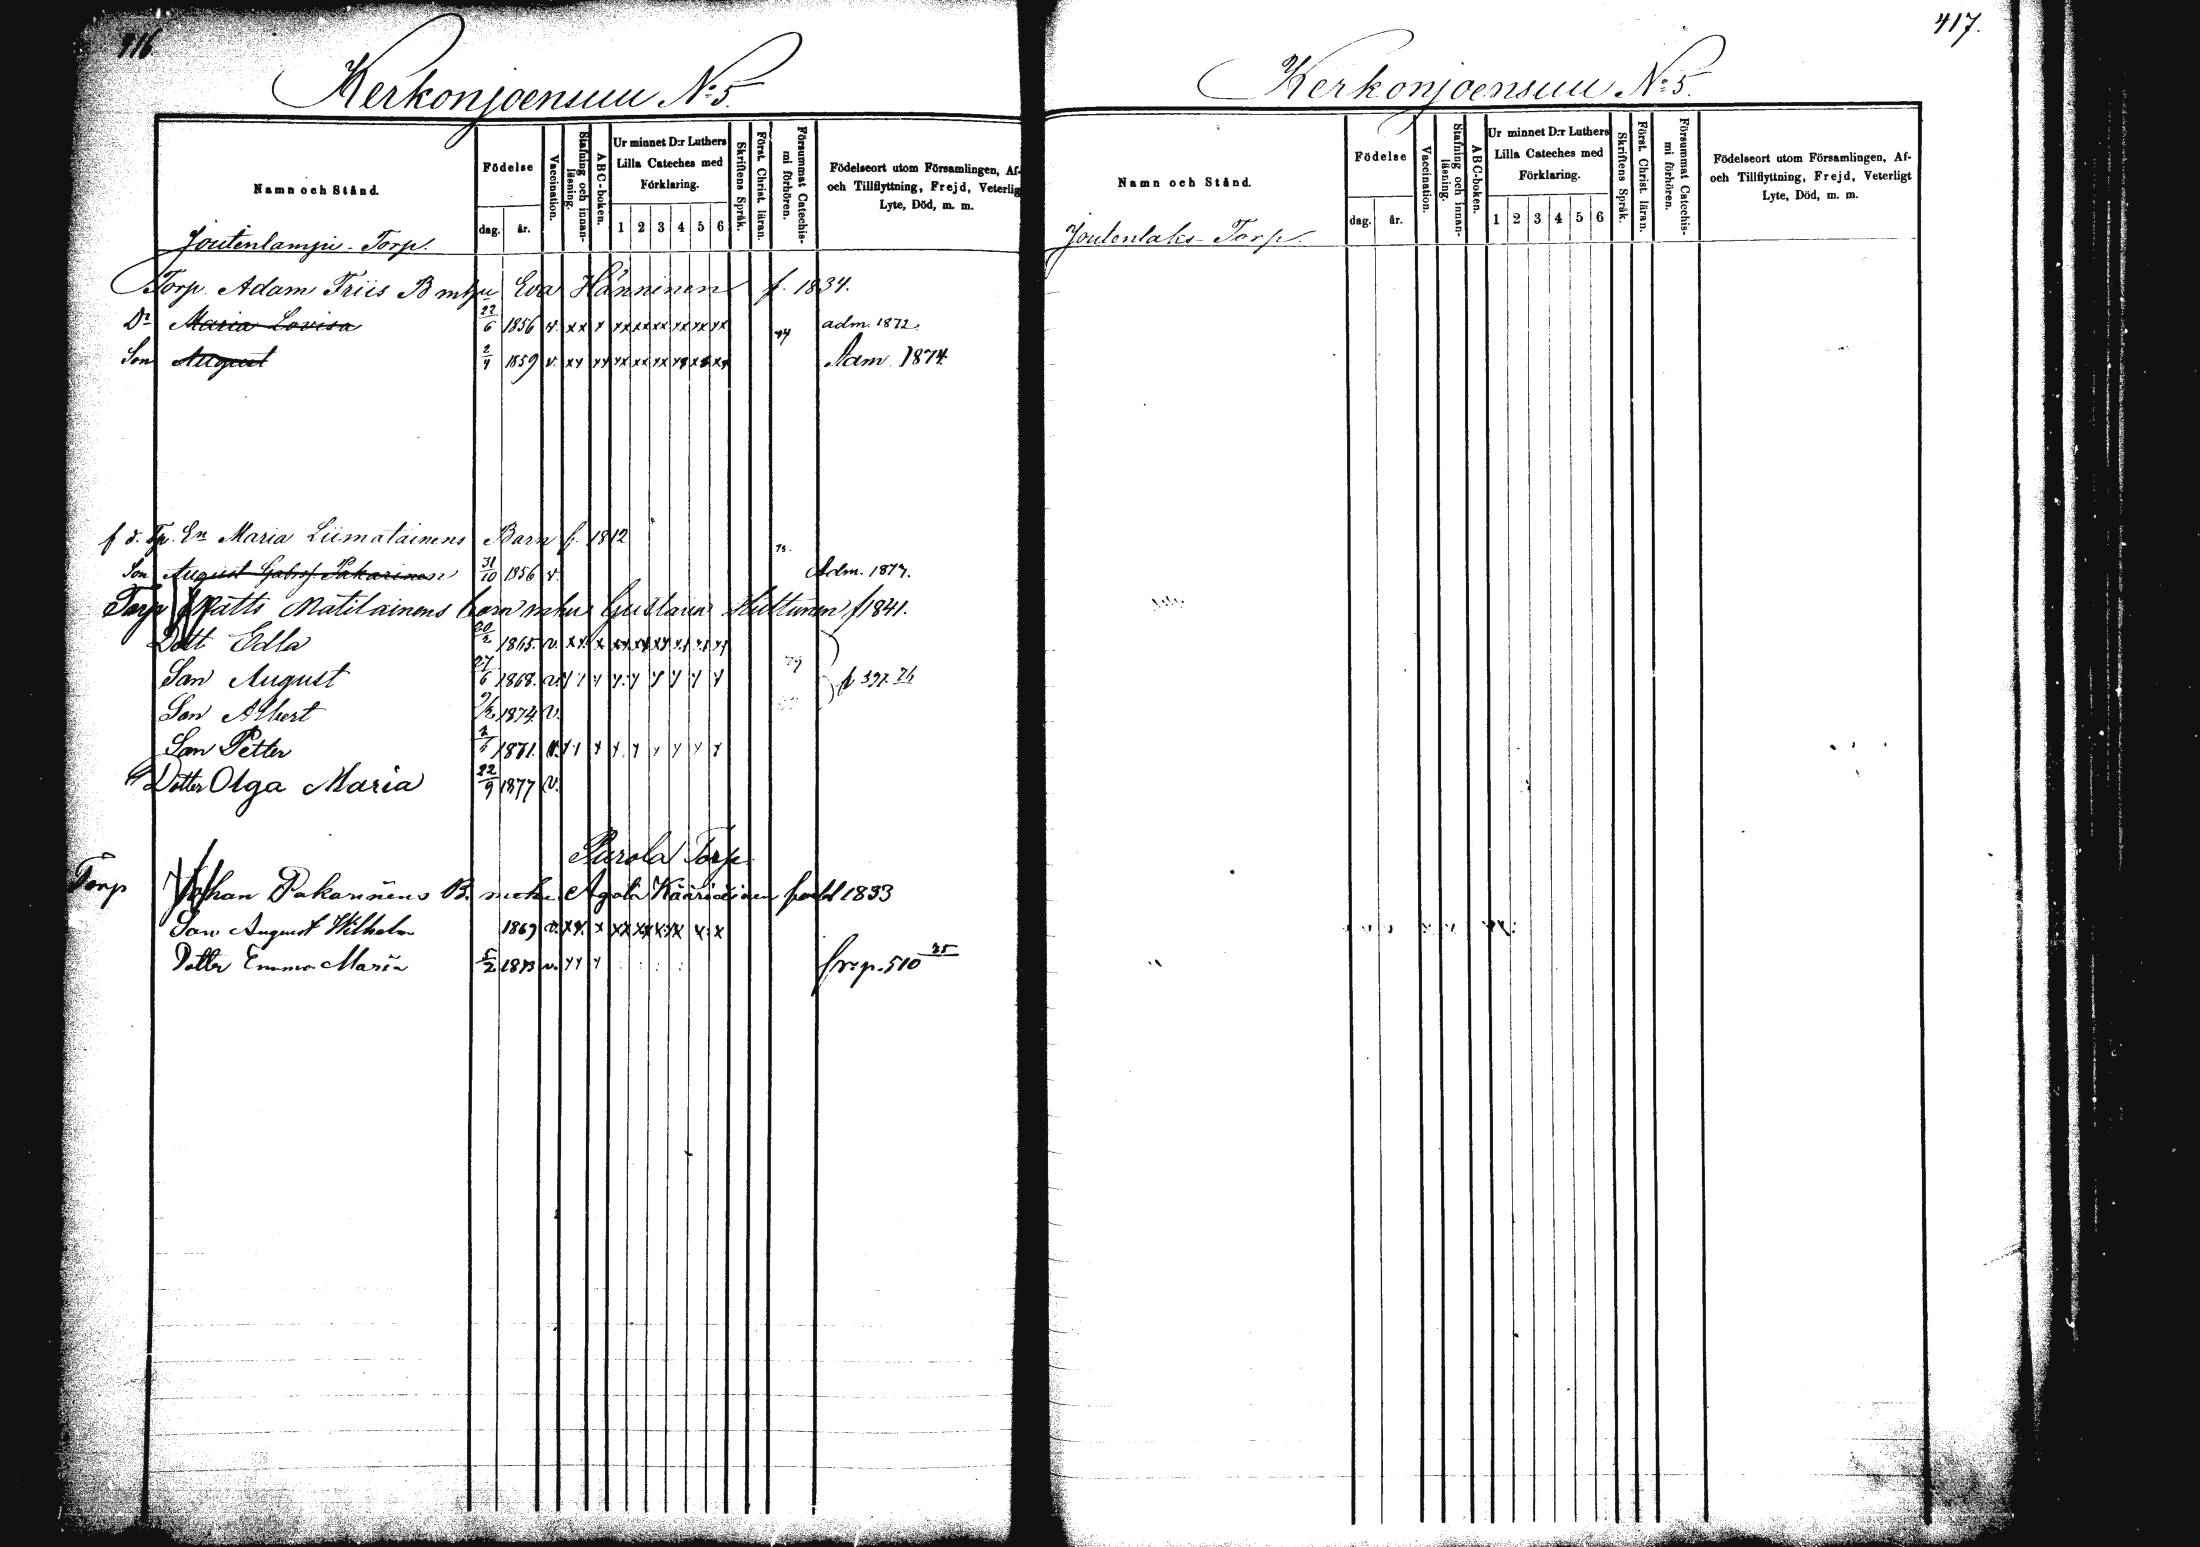 416
Kerkonjoensuu No 5.
Namn och Stånd.
Födelse
dag.
år.
Vaccination.
Stafning och innan-läsning.
ABC-boken.
Ur minnet D:r Luthers
Lilla Cateches med
Förklaring.
1 2 3 4 5 6
Skriftens Språk.
Först. Christ. läran.
Försummat Catechis-
mi förhören.
Födelseort utom Församlingen, Af-
och Tillflyttning, Frejd, Veterlig
Lyte, Död, m. m.
Joutenlampi - Torp.
Torp. Adam Friis B m h Eva Hänninen f. 1834.
Dr Maria Lovisa 22/6 1856 v. xx x xx xx xx xx xx xx adm. 1872.
Son August 2/4 1859 v. xx xx xx xx xx xx xx xx Adm. 1874
f. d. Tp. En Maria Liimatainens Barn f. 1812
Son August Gabr. Pakarinen 31/10 1856 v. Adm. 1877.
Torp Matts Matilainens barn m hu Gustava Huttunen f 1841.
Dott Edla 20/2 1865. v. xx x xx xx xx xx xx xx
Son August 27/6 1868. v. 79 p 397 76
Son Albert 1874. v.
Son Petter 1871. v.
Dotter Olga Maria 22/9 1877 v.
Purola Torp
Torp Johan Pakarinens B. m hu Agata Kääriäinen född 1833
Son August Wilhelm 1869 v. xx x xx xx xx x x
Dotter Emma Maria 5/2 1873 v. xx x fr. p. 510 75
417.
Kerkonjoensuu No 5.
Namn och Stånd.
Födelse
dag.
år.
Vaccination.
Stafning och innan-läsning.
ABC-boken.
Ur minnet D:r Luthers
Lilla Cateches med
Förklaring.
1 2 3 4 5 6
Skriftens Språk.
Först. Christ. läran.
Försummat Catechis-
mi förhören.
Födelseort utom Församlingen, Af-
och Tillflyttning, Frejd, Veterligt
Lyte, Död, m. m.
Joutenlaks - Torp.